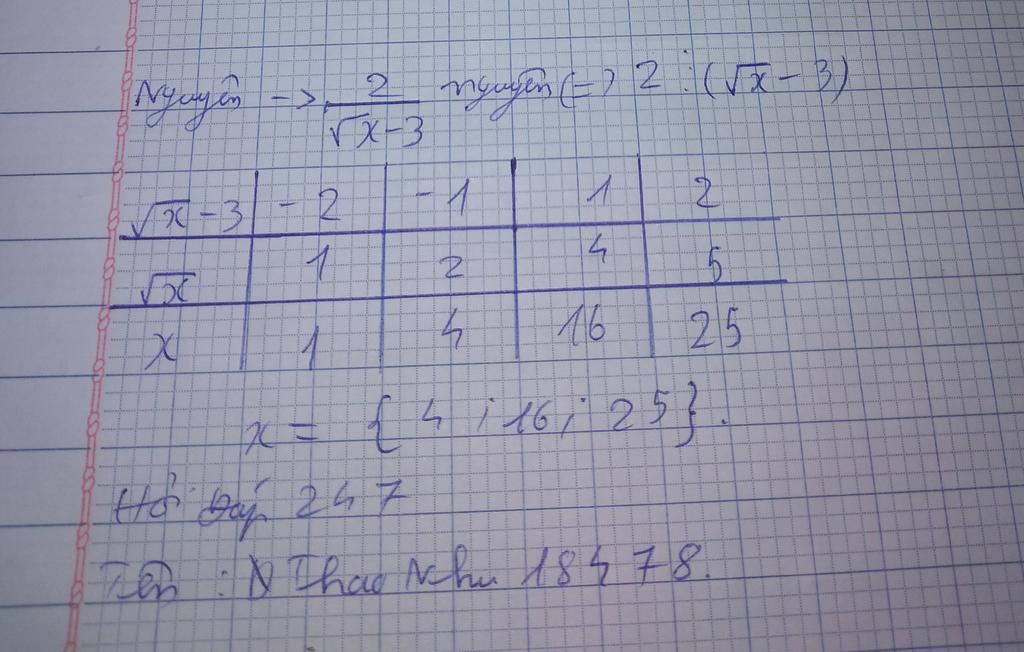 Nguyên -> 2/(√x-3) nguyên (=) 2 ⋮ (√x - 3)
√x - 3 | -2 | -1 | 1 | 2
√x | 1 | 2 | 4 | 5
x | 1 | 4 | 16 | 25
x = {4; 16; 25}.
Hỏi Đáp 247
Tên : N Thao Nhu 18478.